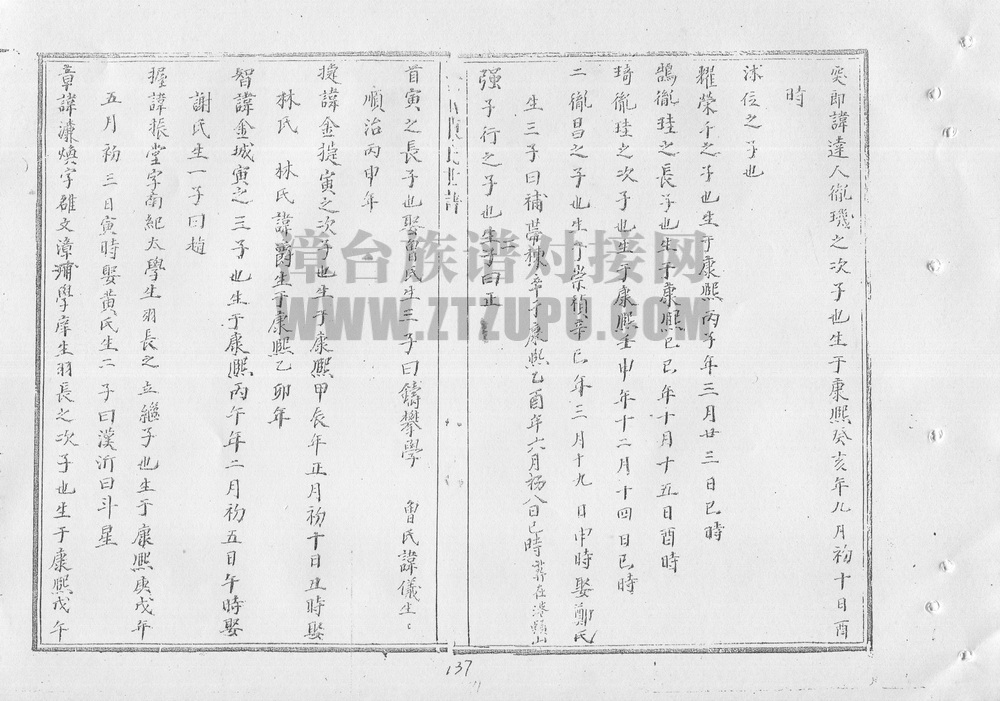 奕即諱達人徹璣之次子也生于康熙癸亥年九月初十日酉
時
沭位之子也
耀榮子之子也生于康熙丙子年三月廿三日巳時
鵠徹珪之長子也生于康熙己巳年十月十五日酉時
琦徹珪之次子也生于康熙壬申年十二月十四日巳時
二徹昌之子也生于崇禎辛巳年三月十九日申時娶鄭氏
生三子曰補帶棟卒于康熙乙酉年六月初八日巳時葬在
山
强子行之子也生子曰正
氏世譜
首寅之長子也娶魯氏生三子曰鑄攀學 魯氏諱儀生
順治丙申年
捷諱金捷寅之次子也生于康熙甲辰年正月初十日丑時娶
林氏 林氏諱爵生于康熙乙卯年
智諱金城寅之三子也生于康熙丙午年二月初五日午時娶
謝氏生一子曰趙
握諱振堂字南紀太學生羽長之立繼子也生于康熙庚戌年
五月初三日寅時娶黄氏生二子曰漢沂曰斗星
章諱濂煥字雛文漳浦學庠生羽長之次子也生于康熙戊午
137
章台族谱对接网
WWW.ZTZUPU.COM